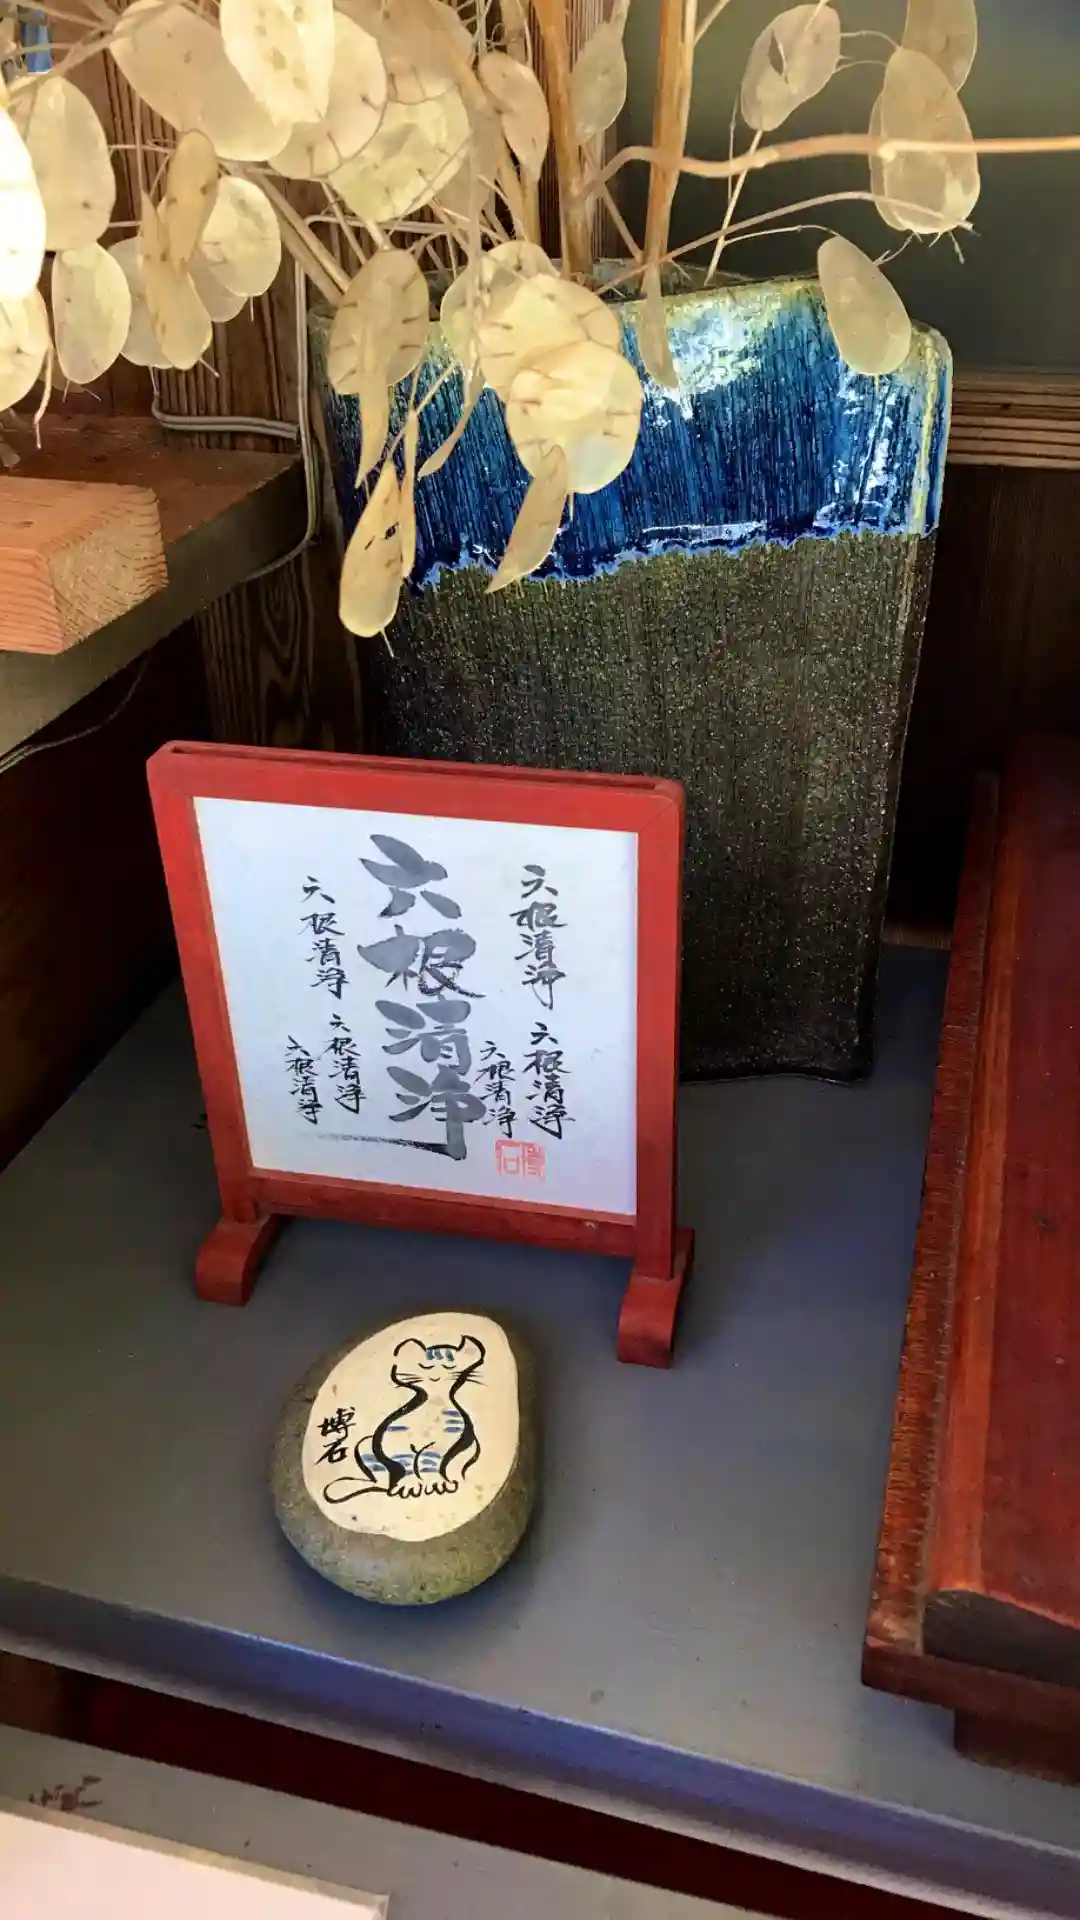 六根清浄
六根清浄
六根清浄
六根清浄
六根清浄
六根清浄
六根清浄
博石